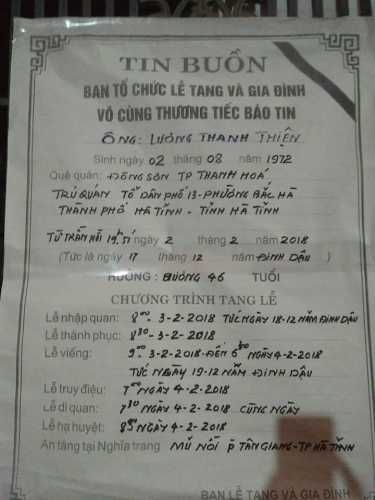 TIN BUỒN
BAN TỔ CHỨC LỄ TANG VÀ GIA ĐÌNH
VÔ CÙNG THƯƠNG TIẾC BÁO TIN
ÔNG: LƯƠNG THANH THIỆN
Sinh ngày 02 tháng 08 năm 1972
Quê quán: ĐÔNG SƠN TP THANH HOÁ
TRÚ QUÁN TỔ DÂN PHỐ 13-PHƯỜNG BẮC HÀ
THÀNH PHỐ HÀ TĨNH - TỈNH HÀ TĨNH
TỪ TRẦN HỒI ngày 2 tháng 2 năm 2018
(Tức là ngày 17 tháng 12 năm ĐINH DẬU )
HƯỞNG: DƯƠNG 46 TUỔI
CHƯƠNG TRÌNH TANG LỄ
Lễ nhập quan: 8 00 - 3-2-2018 TỨC NGÀY 18-12 NĂM ĐINH DẬU
Lễ thành phục: 8 30 - 3-2-2018
Lễ viếng: 9 00 3-2-2018-ĐẾN 6 30 NGÀY 4-2-2018
TỨC NGÀY 19-12 NĂM ĐINH DẬU
Lễ truy điệu: 7 00 NGÀY 4-2-2018
Lễ di quan: 7 30 NGÀY 4-2-2018 CÙNG NGÀY
Lễ hạ huyệt: NGÀY 4-2-2018
An táng tại Nghĩa trang NÚI NÀI P TÂN GIANG-TP HÀ TĨNH
BAN LỄ TANG VÀ GIA ĐÌNH